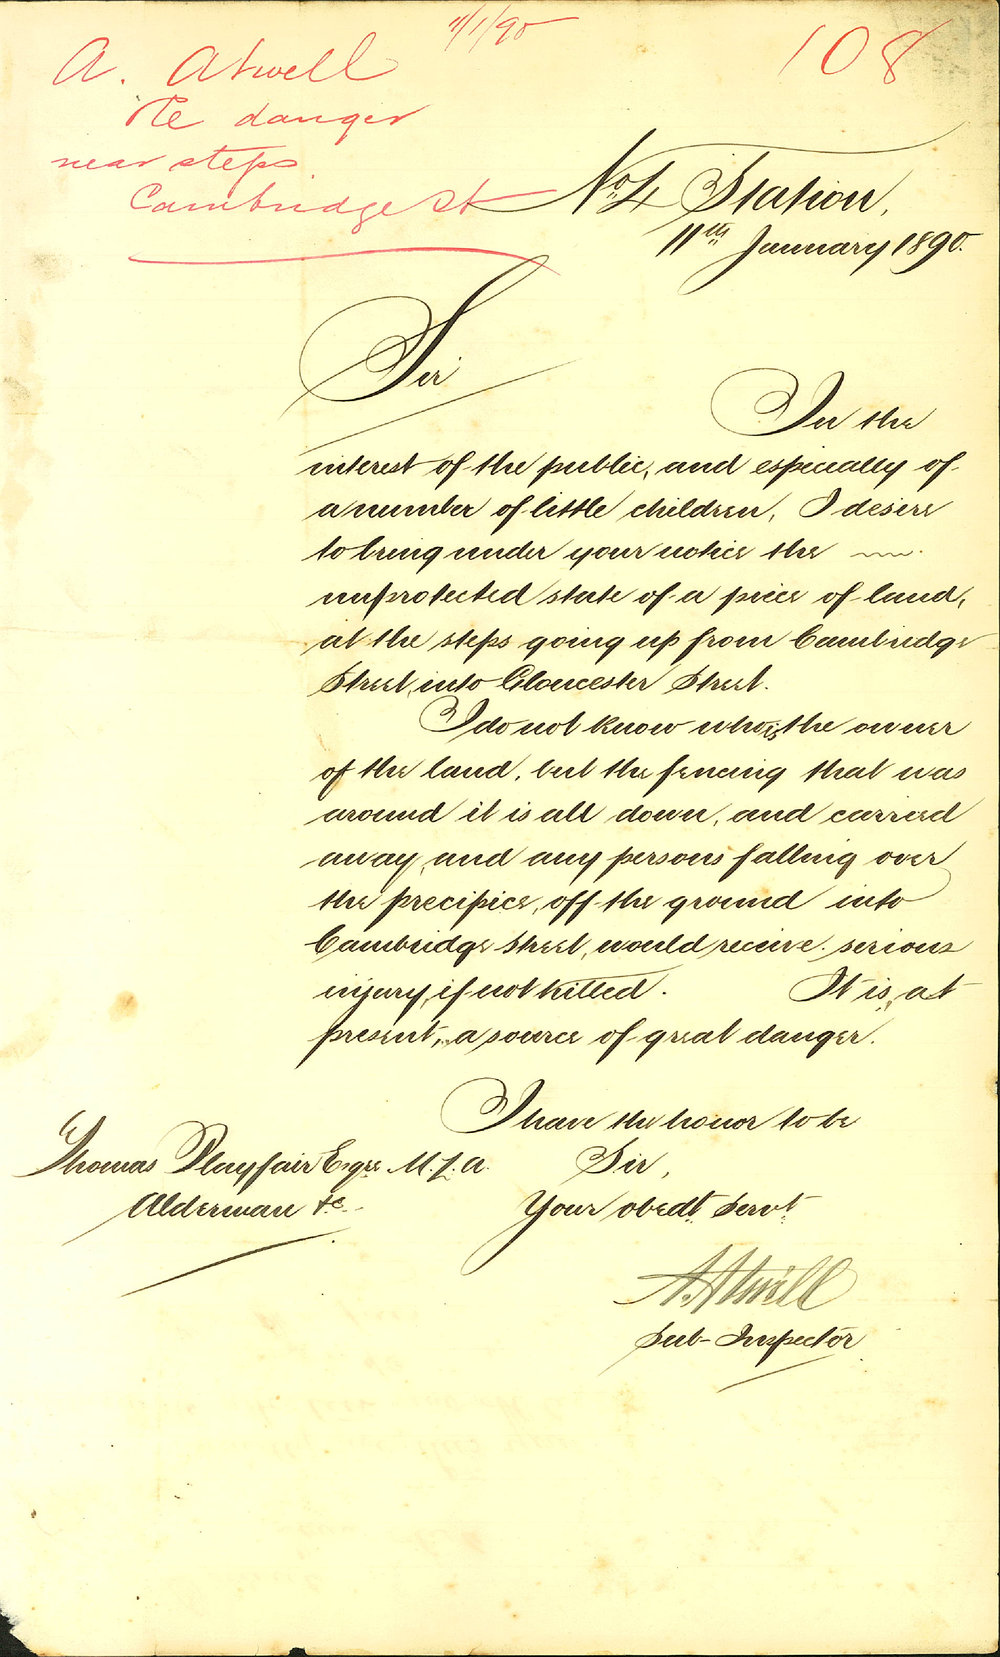 11/1/90
108
A. Atwell
re danger
near steps
Cambridge St
No. 4 Station,
11th January 1890.
Sir
In the
interest of the public, and especially of
a number of little children, I desire
to bring under your notice the
unprotected state of a piece of land,
at the steps going up from Cambridge
Street, into Gloucester Street.
I do not know who is the owner
of the land, but the fencing that was
around it is all down, and carried
away, and any persons falling over
the precipice, off the ground into
Cambridge Street, would receive serious
injury, if not killed. It is, at
present, a source of great danger.
I have the honor to be
Thomas Playfair Esqre M.L.A. Sir,
Alderman &c. Your obedt. Servt.
A. Atwill
Sub-Inspector